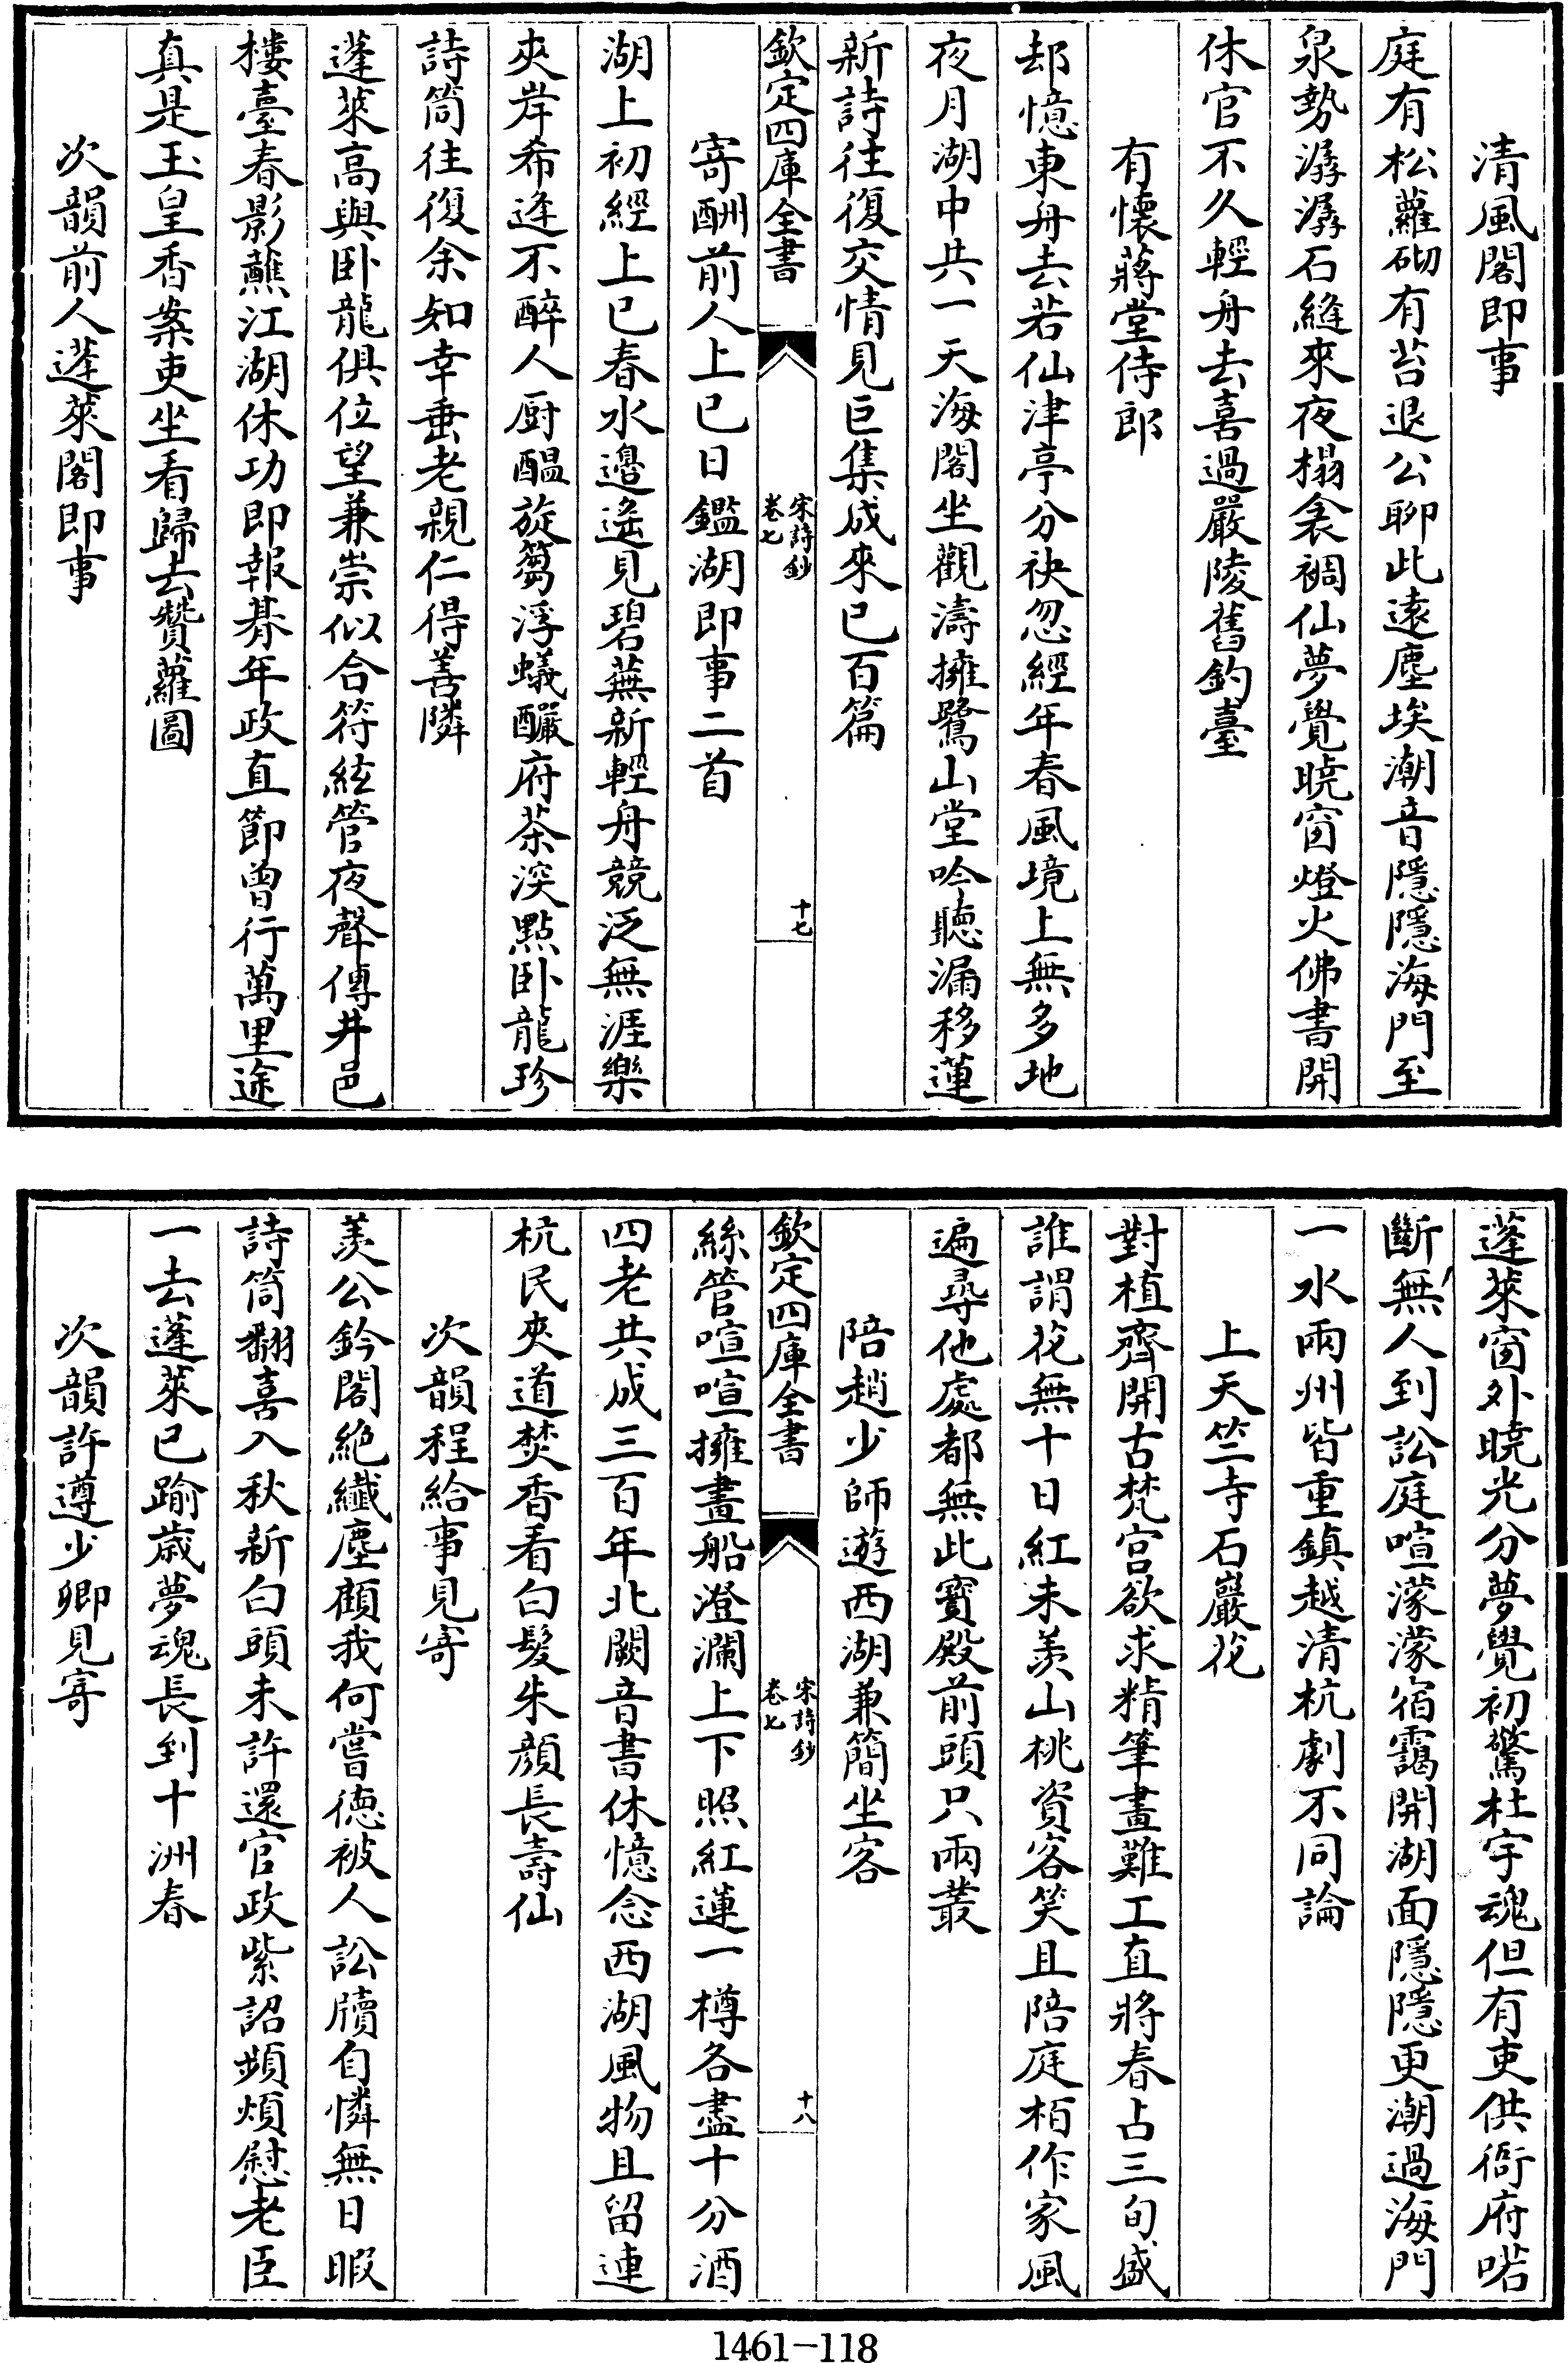 清風閣即事
庭有松蘿砌有苔退公聊此遠塵埃潮音隱隱海門至
泉勢潺潺石縫來夜榻衾裯仙夢覺曉窗燈火佛書開
休官不久輕舟去喜過嚴陵舊釣臺
有懷蔣堂侍郎
却憶東舟去若仙津亭分袂忽經年春風境上無多地
夜月湖中共一天海閣坐觀濤擁鷺山堂吟聽漏移蓮
新詩往復交情見巨集成來已百篇
欽定四庫全書
宋詩鈔
卷七
十七
寄酬前人上巳日鑑湖即事二首
湖上初經上巳春水邊遙見碧蕪新輕舟競泛無涯樂
夾岸希逢不醉人厨醖旋篘浮蟻釅府茶深點卧龍珍
詩筒往復余知幸垂老親仁得善隣
蓬萊高與卧龍俱位望兼崇似合符絃管夜聲傳井邑
樓臺春影蘸江湖休功即報朞年政直節曾行萬里途
真是玉皇香案吏坐看歸去贊蘿圖
次韻前人蓬萊閣即事
蓬萊窗外曉光分夢覺初驚杜宇魂但有吏供衙府喏
斷無人到訟庭喧濛濛宿靄開湖面隱隱更潮過海門
一水兩州皆重鎮越清杭劇不同論
上天竺寺石巖花
對植齊開古梵宫欲求精筆畫難工直將春占三旬盛
誰謂花無十日紅未羨山桃資客笑且陪庭栢作家風
遍尋他處都無此寶殿前頭只兩叢
陪趙少師遊西湖兼簡坐客
欽定四庫全書
宋詩鈔
卷七
十八
絲管喧喧擁畫船澄瀾上下照紅蓮一樽各盡十分酒
四老共成三百年北闕音書休憶念西湖風物且留連
杭民夾道焚香看白髮朱顔長壽仙
次韻程給事見寄
羨公鈴閣絶纖塵顧我何嘗德被人訟牘自憐無日暇
詩筒翻喜入秋新白頭未許還官政紫詔頻煩慰老臣
一去蓬萊已踰歲夢魂長到十洲春
次韻許遵少卿見寄
1461-118